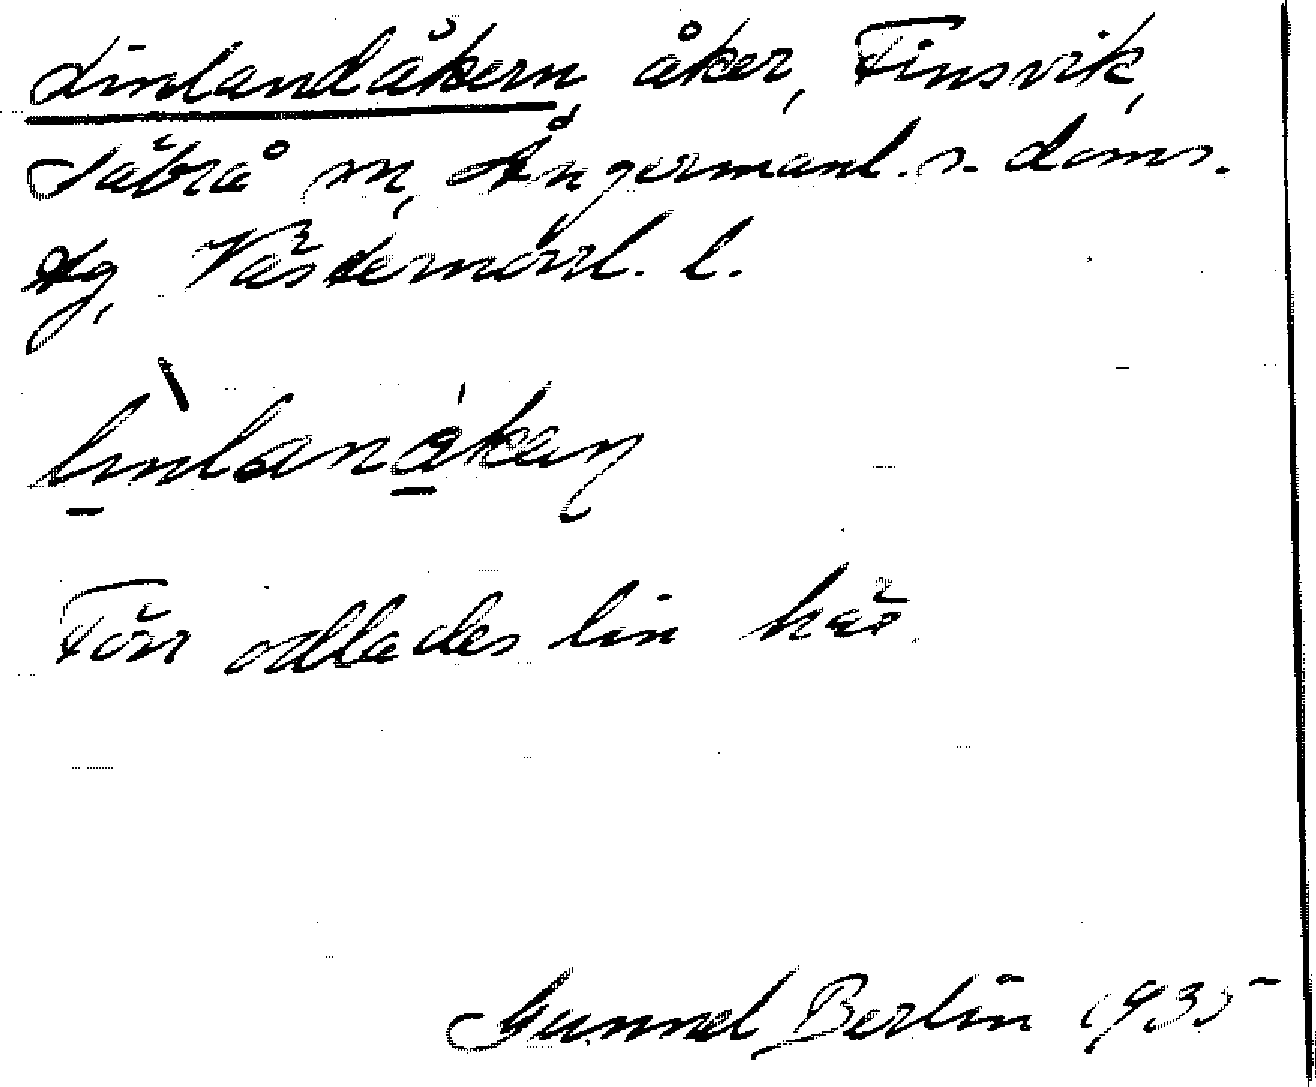 Linlandåkern, åker, Finsvik,
Säbrå sn, Ångermanl. s. doms.
dg, Västernorrl. l.
linlanåkeṇ
Förr odlades lin här.
Gunnel Berlin 1935